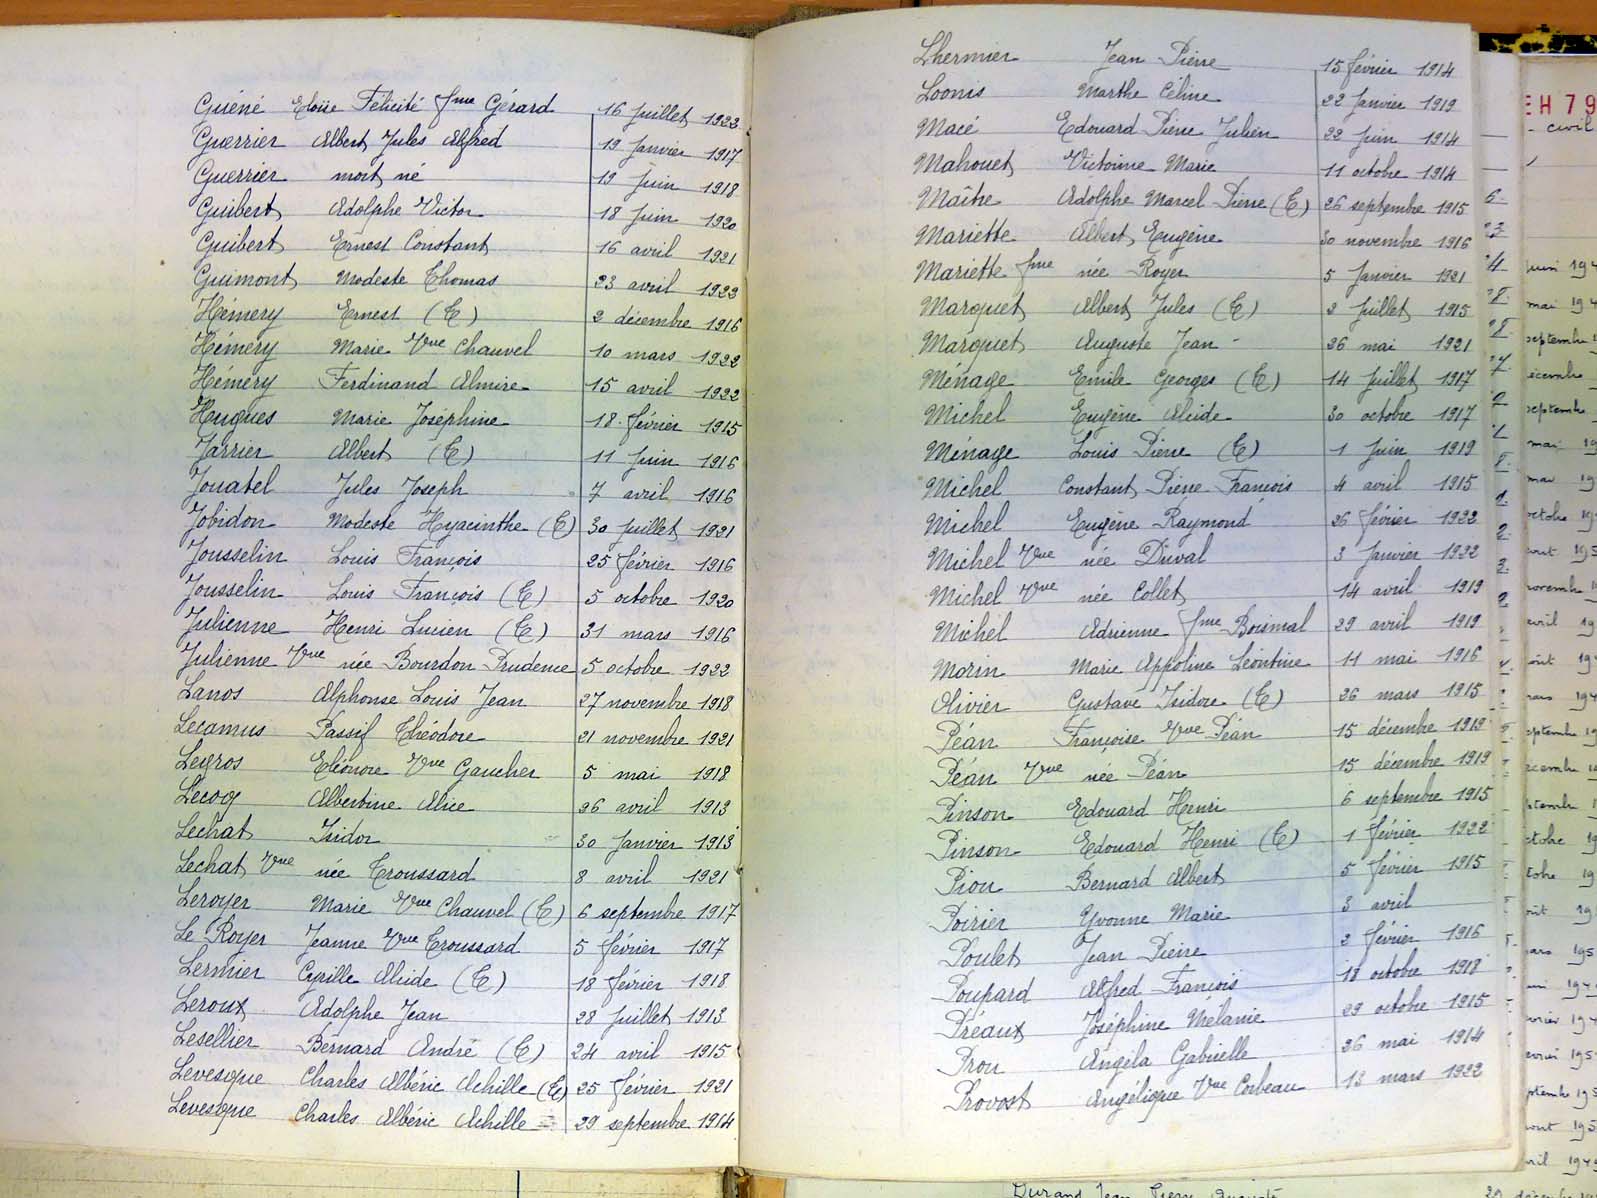 Guéné Eloïse Félicité fme Gérard 16 juillet 1922
Guerrier Albert Jules Alfred 19 Janvier 1917
Guerrier mort né 19 Juin 1918
Guibert Adolphe Victor 18 Juin 1920
Guibert Ernest Constant 16 avril 1921
Guimont Modeste Thomas 23 avril 1922
Hémery Ernest (E) 2 décembre 1916
Hémery Marie Vve Chauvel 10 mars 1922
Hémery Ferdinand Almire 15 avril 1922
Hugues Marie Joséphine 18 février 1915
Jarrier Albert (E) 11 Juin 1916
Jouatel Jules Joseph 7 avril 1916
Jobidon Modeste Hyacinthe (E) 30 Juillet 1921
Jousselin Louis François 25 février 1916
Jousselin Louis François (E) 5 octobre 1920
Julienne Henri Lucien (E) 31 mars 1916
Julienne Vve née Bourdon Prudence 5 octobre 1922
Lanos Alphonse Louis Jean 27 novembre 1918
Lecamus Passif Théodore 21 novembre 1921
Legros Eléonore Vve Gaucher 5 mai 1918
Lecoq Albertine Alice 26 avril 1913
Lechat Isidor 30 Janvier 1913
Lechat Vve née Troussard 8 avril 1921
Leroyer Marie Vve Chauvel (E) 6 septembre 1917
Le Royer Jeanne Vve Troussard 5 février 1917
Lermier Cyrille Alcide (E) 18 février 1918
Leroux Adolphe Jean 28 Juillet 1913
Lesellier Bernard André (E) 24 avril 1915
Levesque Charles Albéric Achille (E) 25 février 1921
Levesque Charles Albéric Achille 29 septembre 1914
Lhermier Jean Pierre 15 février 1914
Loonis Marthe Céline 22 Janvier 1919
Macé Edouard Pierre Julien 22 Juin 1914
Mahouet Victoirine Marie 11 octobre 1914
Maître Adolphe Marcel Pierre (E) 26 septembre 1915
Mariette Albert Eugène 30 novembre 1916
Mariette fme née Royer 5 Janvier 1921
Marquet Albert Jules (E) 2 Juillet 1915
Marquet Auguste Jean 26 mai 1921
Ménage Emile Georges (E) 14 Juillet 1917
Michel Eugène Alcide 30 octobre 1917
Ménage Louis Pierre (E) 1 Juin 1919
Michel Constant Pierre François 4 avril 1915
Michel Eugène Raymond 26 février 1922
Michel Vve née Duval 3 Janvier 1922
Michel Vve née Collet 14 avril 1919
Michel Adrienne fme Boismal 29 avril 1919
Morin Marie Appoline Léontine 11 mai 1916
Olivier Gustave Isidore (E) 26 mars 1915
Péan Françoise Vve Péan 15 décembre 1919
Péan Vve née Péan 15 décembre 1919
Pinson Edouard Henri 6 septembre 1915
Pinson Edouard Henri (E) 1 février 1922
Piou Bernard Albert 5 février 1915
Poirier Yvonne Marie 3 avril
Poulet Jean Pierre 2 février 1916
Poupard Alfred François 18 octobre 1918
Préaux Joséphine Mélanie 29 octobre 1915
Prou Angela Gabrielle 26 mai 1914
Provost Angélique Vve Corbeau 13 mars 1922
EH 79
civil
Durand Jean Pierre Auguste